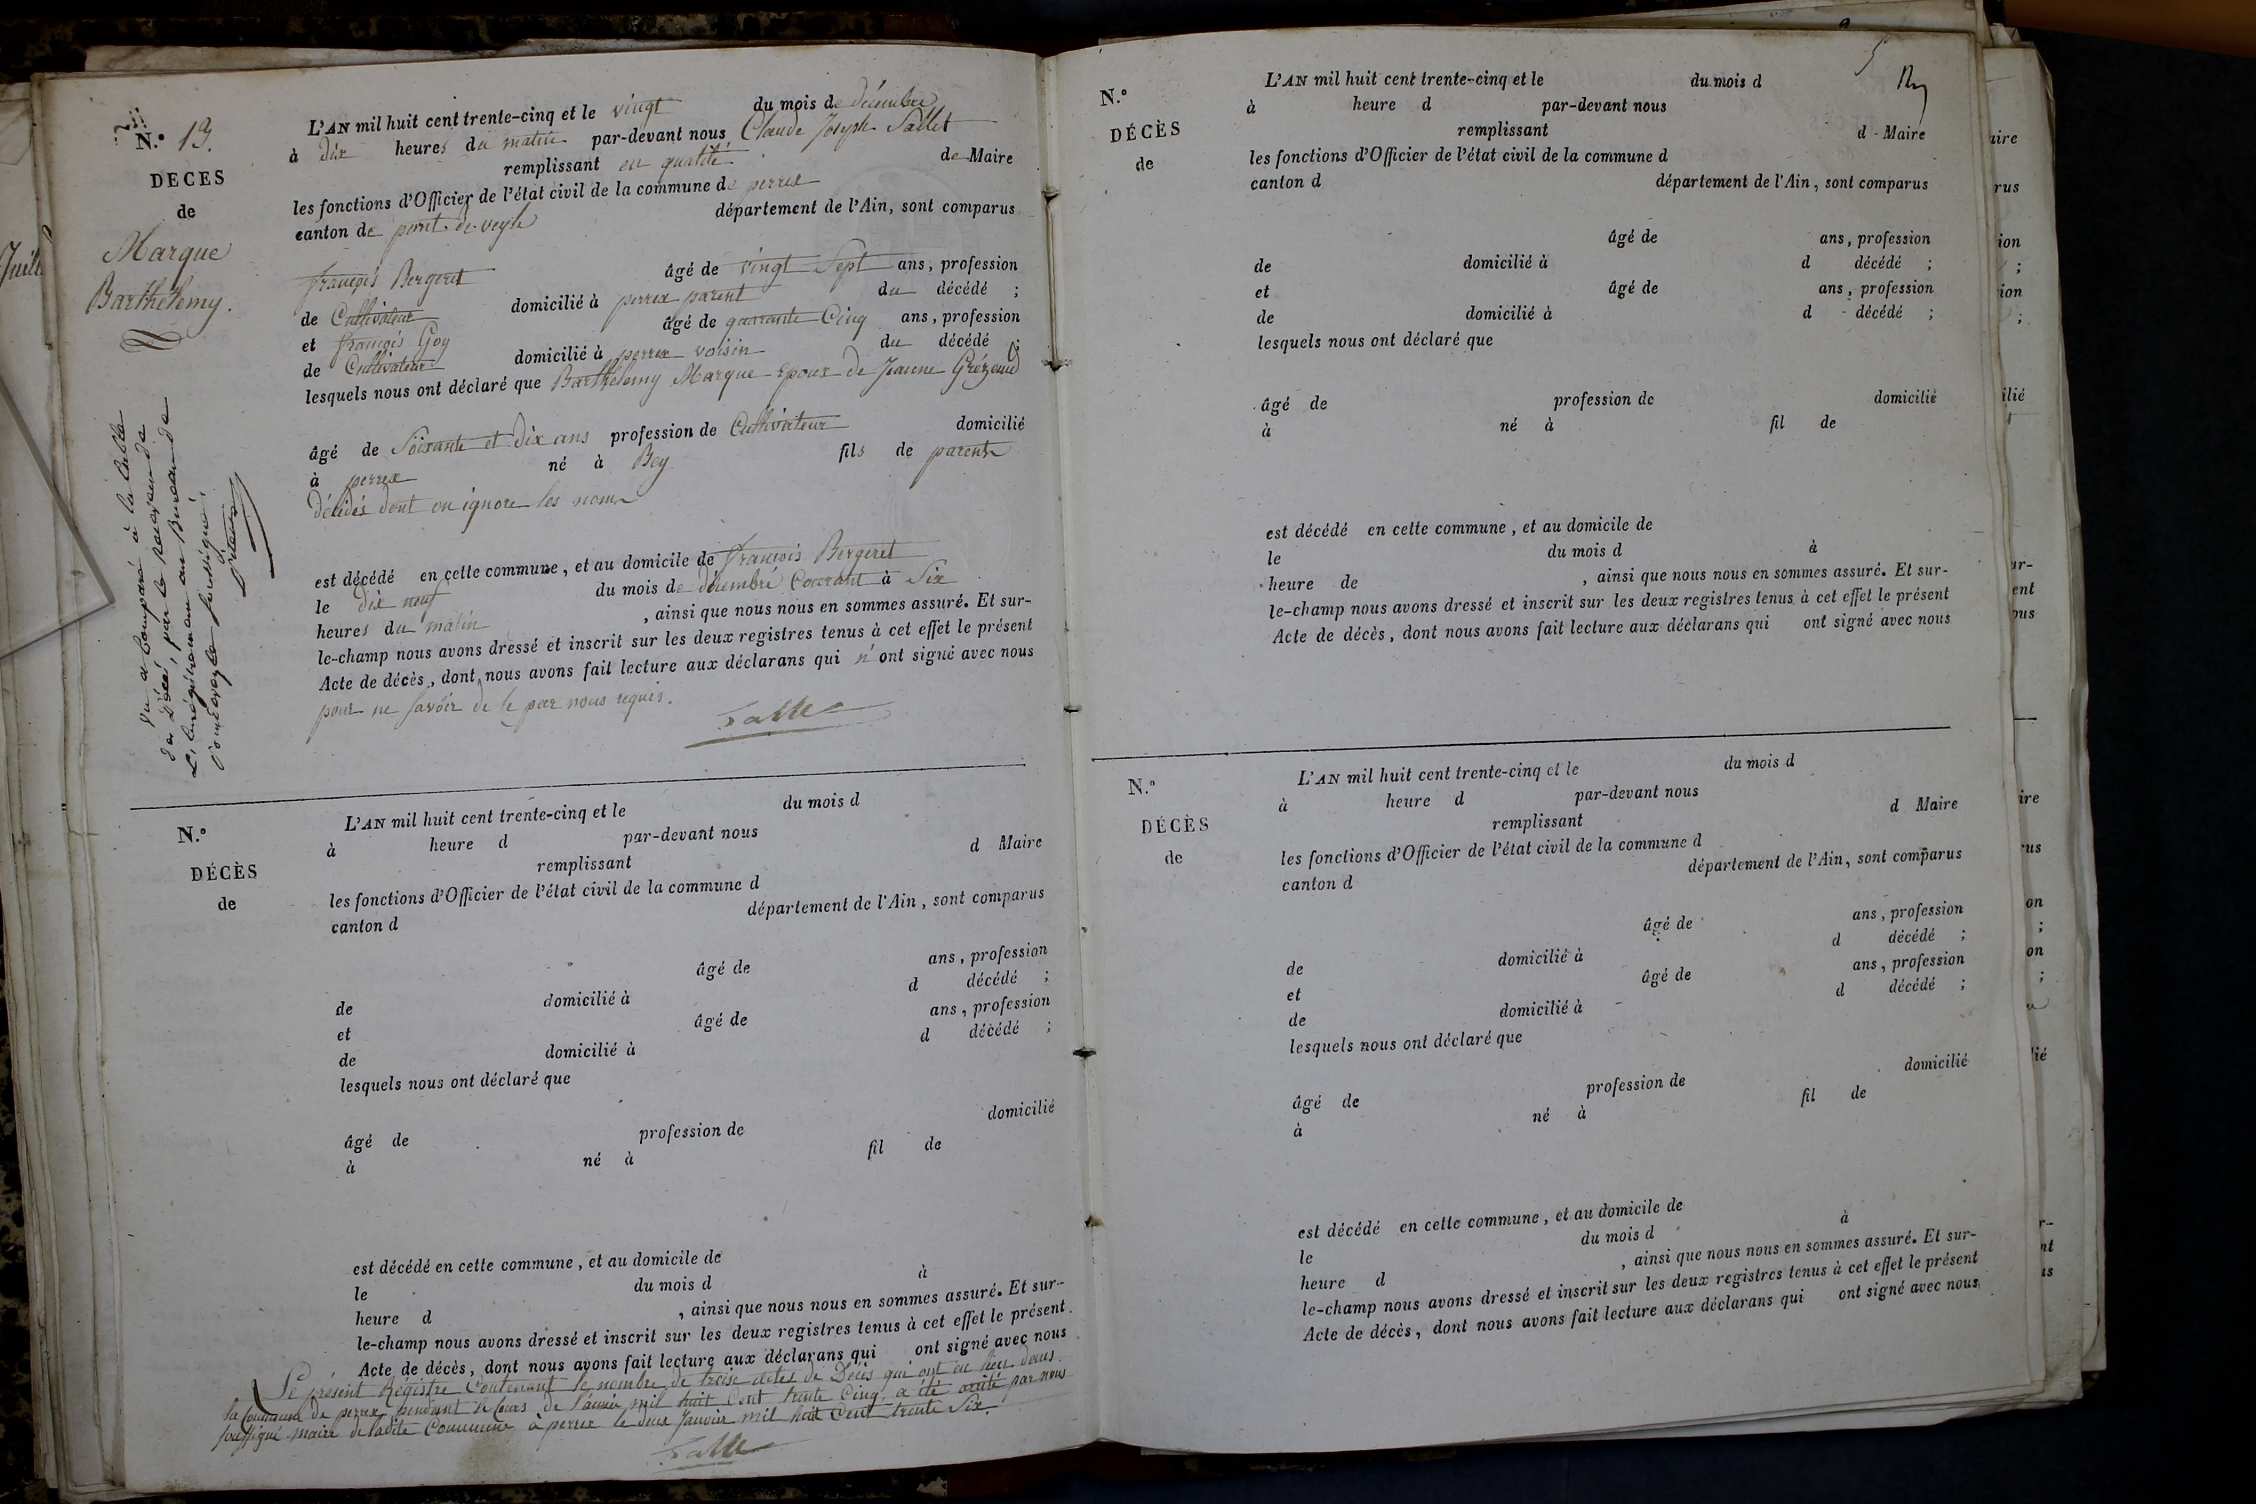 N.° 13.
DECES
de
Marque
Barthélemy.
L'AN mil huit cent trente-cinq et le vingt du mois de décembre
à dix heures du matin par-devant nous Claude Joseph Sallet
remplissant en qualité de Maire
les fonctions d'Officier de l'état civil de la commune de perrex
canton de pont-de-veyle département de l'Ain, sont comparus
françois Bergeret âgé de vingt Sept ans, profession
de Cultivateur domicilié à perrex parent du décédé ;
et françois Goy âgé de quarante Cinq ans, profession
de Cultivateur domicilié à perrex voisin du décédé ;
lesquels nous ont déclaré que Barthélemy Marque Epoux de Jeanne Grézaud
âgé de Soixante et Dix ans profession de Cultivateur domicilié
à perrex né à Bey fils de parents
décidés dont on ignore les noms
est décédé en cette commune, et au domicile de françois Bergeret
le dix neuf du mois de décembre Courant à Six
heures du matin , ainsi que nous nous en sommes assuré. Et sur-
le-champ nous avons dressé et inscrit sur les deux registres tenus à cet effet le présent
Acte de décès, dont nous avons fait lecture aux déclarans qui n'ont signé avec nous
pour ne savoir de le par nous requis.
Sallet
Vu et Comparé à la table
des Décès, par le Receveur de
L'Enregistrement au Bureau de
soussigné
N.°
DÉCÈS
de
L'AN mil huit cent trente-cinq et le du mois d
à heure d par-devant nous
remplissant d Maire
les fonctions d'Officier de l'état civil de la commune d
canton d département de l'Ain, sont comparus
âgé de ans, profession
de domicilié à d décédé ;
et âgé de ans, profession
de domicilié à d décédé ;
lesquels nous ont déclaré que
âgé de profession de domicilié
à né à fil de
est décédé en cette commune, et au domicile de
le du mois d à
heure d , ainsi que nous nous en sommes assuré. Et sur-
le-champ nous avons dressé et inscrit sur les deux registres tenus à cet effet le présent
Acte de décès, dont nous avons fait lecture aux déclarans qui ont signé avec nous
Le présent Régistre Contenant le nombre de treise actes de Décès qui ont eu lieu dans
la Commune de perrex pendant le Cours de l'année mil huit Cent trente Cinq, a été arrêté par nous
soussigné maire de ladite Commune à perrex le deux Janvier mil huit Cent trente Six.
Sallet
5
N.°
DÉCÈS
de
L'AN mil huit cent trente-cinq et le du mois d
à heure d par-devant nous
remplissant d Maire
les fonctions d'Officier de l'état civil de la commune d
canton d département de l'Ain, sont comparus
âgé de ans, profession
de domicilié à d décédé ;
et âgé de ans, profession
de domicilié à d décédé ;
lesquels nous ont déclaré que
âgé de profession de domicilié
à né à fil de
est décédé en cette commune, et au domicile de
le du mois d à
heure de , ainsi que nous nous en sommes assuré. Et sur-
le-champ nous avons dressé et inscrit sur les deux registres tenus à cet effet le présent
Acte de décès, dont nous avons fait lecture aux déclarans qui ont signé avec nous
N.°
DÉCÈS
de
L'AN mil huit cent trente-cinq et le du mois d
à heure d par-devant nous
remplissant d Maire
les fonctions d'Officier de l'état civil de la commune d
canton d département de l'Ain, sont comparus
âgé de ans, profession
de domicilié à d décédé ;
et âgé de ans, profession
de domicilié à d décédé ;
lesquels nous ont déclaré que
âgé de profession de domicilié
à né à fil de
est décédé en cette commune, et au domicile de
le du mois d à
heure d , ainsi que nous nous en sommes assuré. Et sur-
le-champ nous avons dressé et inscrit sur les deux registres tenus à cet effet le présent
Acte de décès, dont nous avons fait lecture aux déclarans qui ont signé avec nous